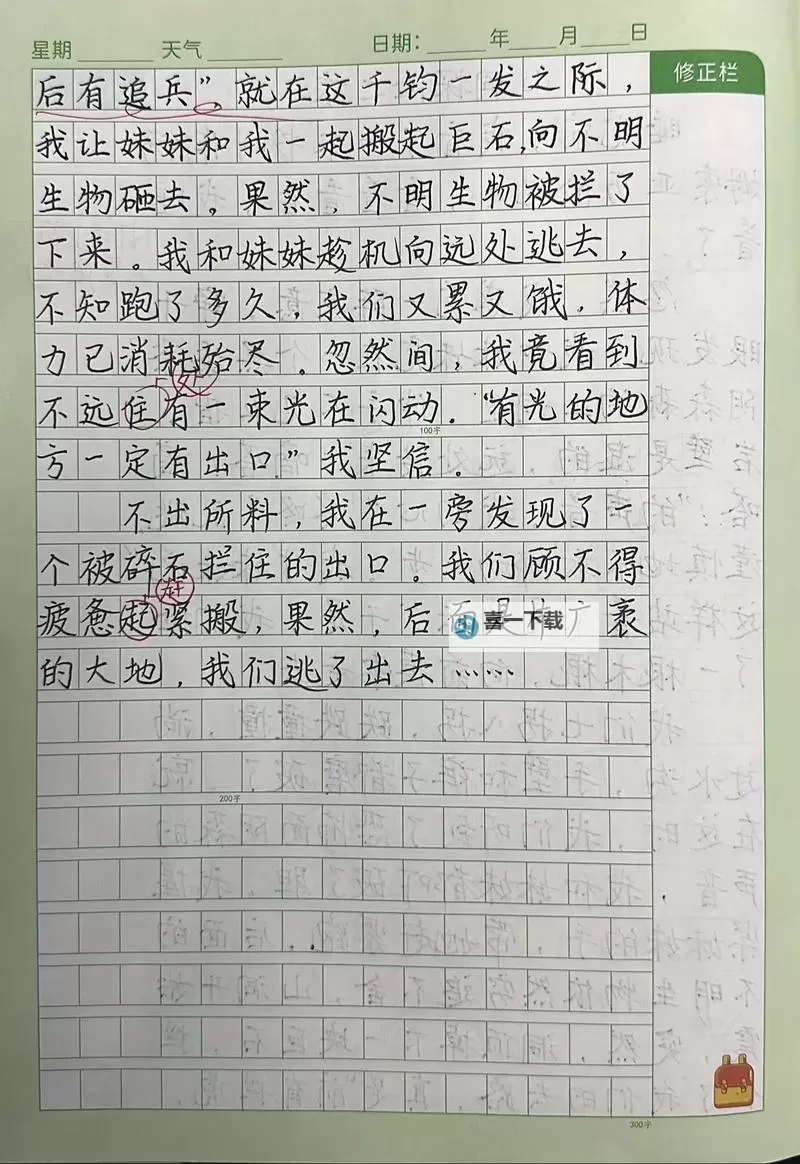 星期 天气 日期： 年 月 日
修正栏
后有追兵”。就在这千钧一发之际，
我让妹妹和我一起搬起巨石，向不明
生物砸去。果然，不明生物被拦了
下来。我和妹妹趁机向远处逃去，
不知跑了多久，我们又累又饿，体
力已消耗殆尽。忽然间，我竟看到
不远住有一束光在闪动．“有光的地
100字
方一定有出口”我坚信。
不出所料，我在一旁发现了一
个被碎石拦住的出口。我们顾不得
赶
疲惫起紧搬，果然，后面是 广袤
喜一下载
的大地，我们逃了出去……
200字
300字